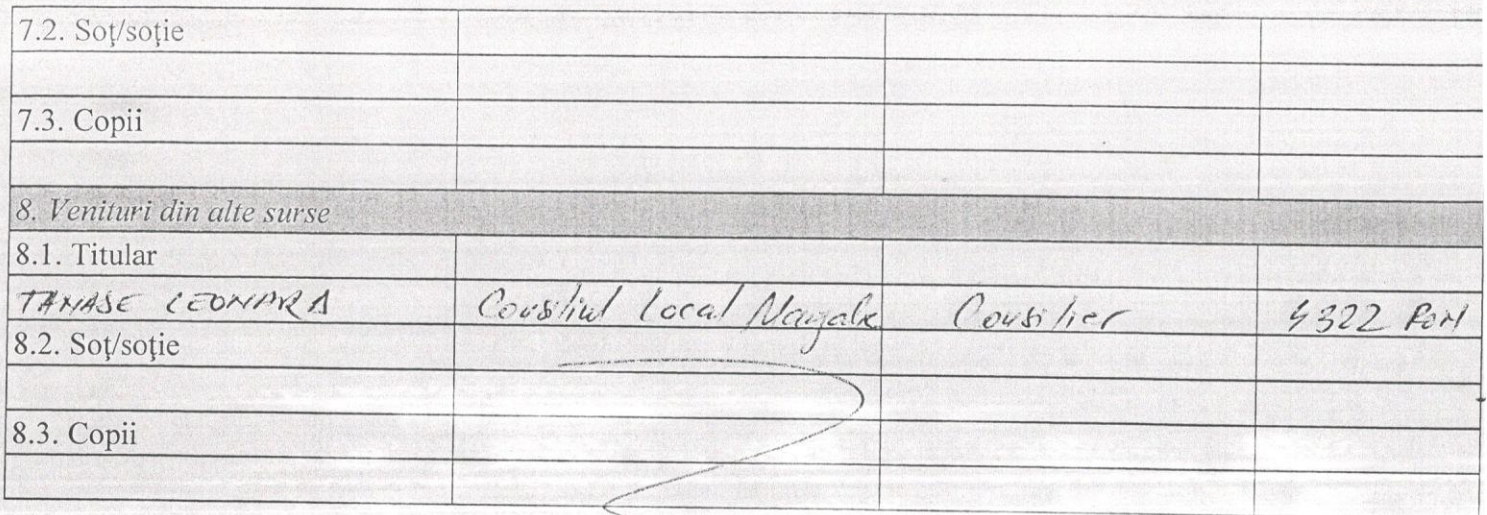 7.2. Soţ/soţie
7.3. Copii
8. Venituri din alte surse
8.1. Titular
TANASE LEONARD Consiliul Local Consilier 4322 RON
8.2. Soţ/soţie
8.3. Copii